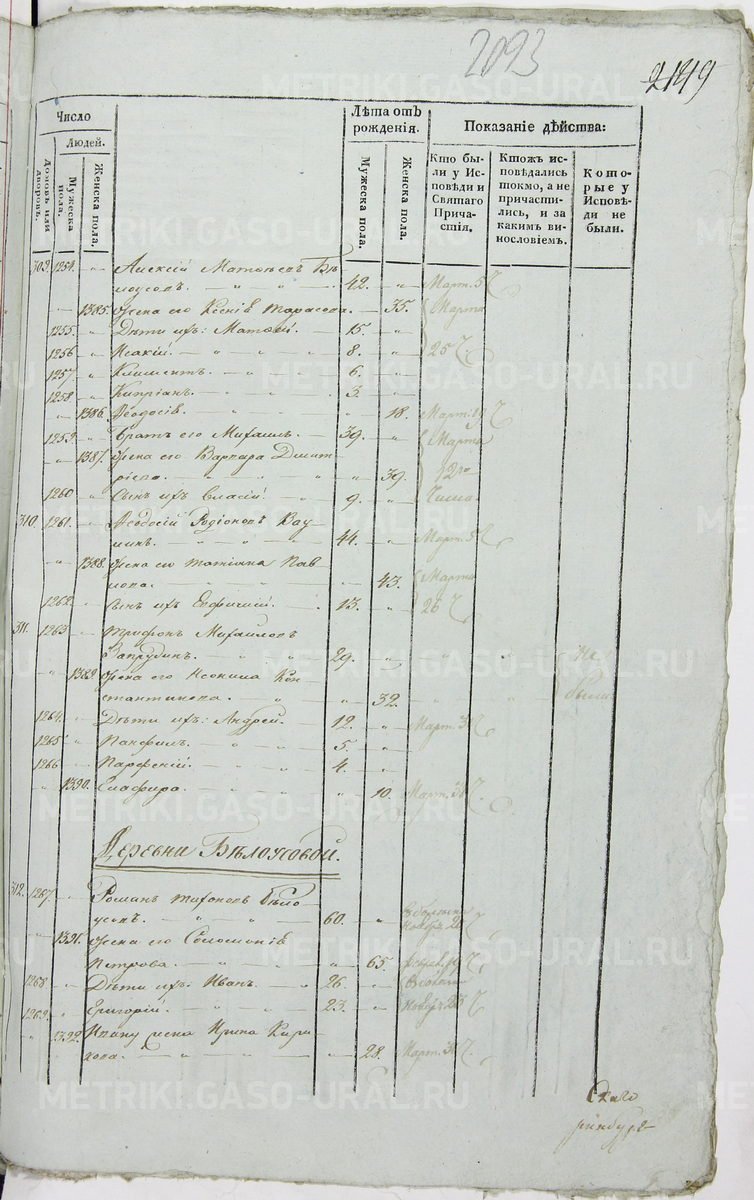 2093
2149
Число
Людей.
Домовъ или дворовъ.
Мужеска пола.
Женска пола.
Лѣта отъ рожденія.
Мужеска пола.
Женска пола.
Показаніе дѣйства:
Кто бы-
ли у Ис-
повѣди и
Святаго
Прича-
стія.
Ктожъ ис-
повѣдались
токмо, а не
причасти-
лись, и за
какимъ ви-
нословіемъ.
Кото-
рые у
Исповѣ-
ди не
были.
309. 1254. „ Алексій Матвѣевъ Бѣ-
лоусовъ. 42. „ Март. 5
„ 1385. Жена его Ксенія Тарасова. „ 35. Марта
1255. „ Дѣти ихъ: Матвѣй. 15. „
1256 „ Исакій. 8. „ 25
1257 „ Климентъ. 6. „
1258 „ Кипріанъ. 3. „
„ 1386. Ѳеодосія. „ 18. Март. 19
1259. „ Братъ его Михаилъ. 39. „ Марта
„ 1387. Жена его Варвара Дмит-
ріева. „ 39. 12го
1260 „ Сынъ ихъ Власій. 9. „ Числа
310. 1261. „ Ѳеодосій Родіоновъ Ва-
44. „ Март. 5
„ 1388. Жена его Татіана Пав-
лова. „ 43. Марта
1262. „ Сынъ ихъ 13. „ 26
311. 1263. „ Трифонъ Михайловъ
Запрудинъ. 29. „ „ „ Не
„ 1389. Жена его Ксенія Кон-
стантинова. „ 32. „ „ были
1264. „ Дѣти ихъ: Андрей. 12. „ Март. 3
1265. „ Панфилъ. 5. „
1266 „ Парфеній. 4. „
„ 1390. Глафира. „ 10. Март. 3
Деревни Бѣлоусовой.
312. 1267. „ Романъ Тихоновъ Бѣло-
усовъ. 60. „ Ноябр. 2
„ 1391. Жена его Соломонія
Петрова. „ 65. Феврал. 19
1268. „ Дѣти ихъ: Иванъ. 26. „
1269. „ Григорій. 23. „ Ноябр. 2
„ 1392. Ивану жена Ирина Кири-
лова. „ 28. Март. 3
METRIKI.GASO-URAL.RU